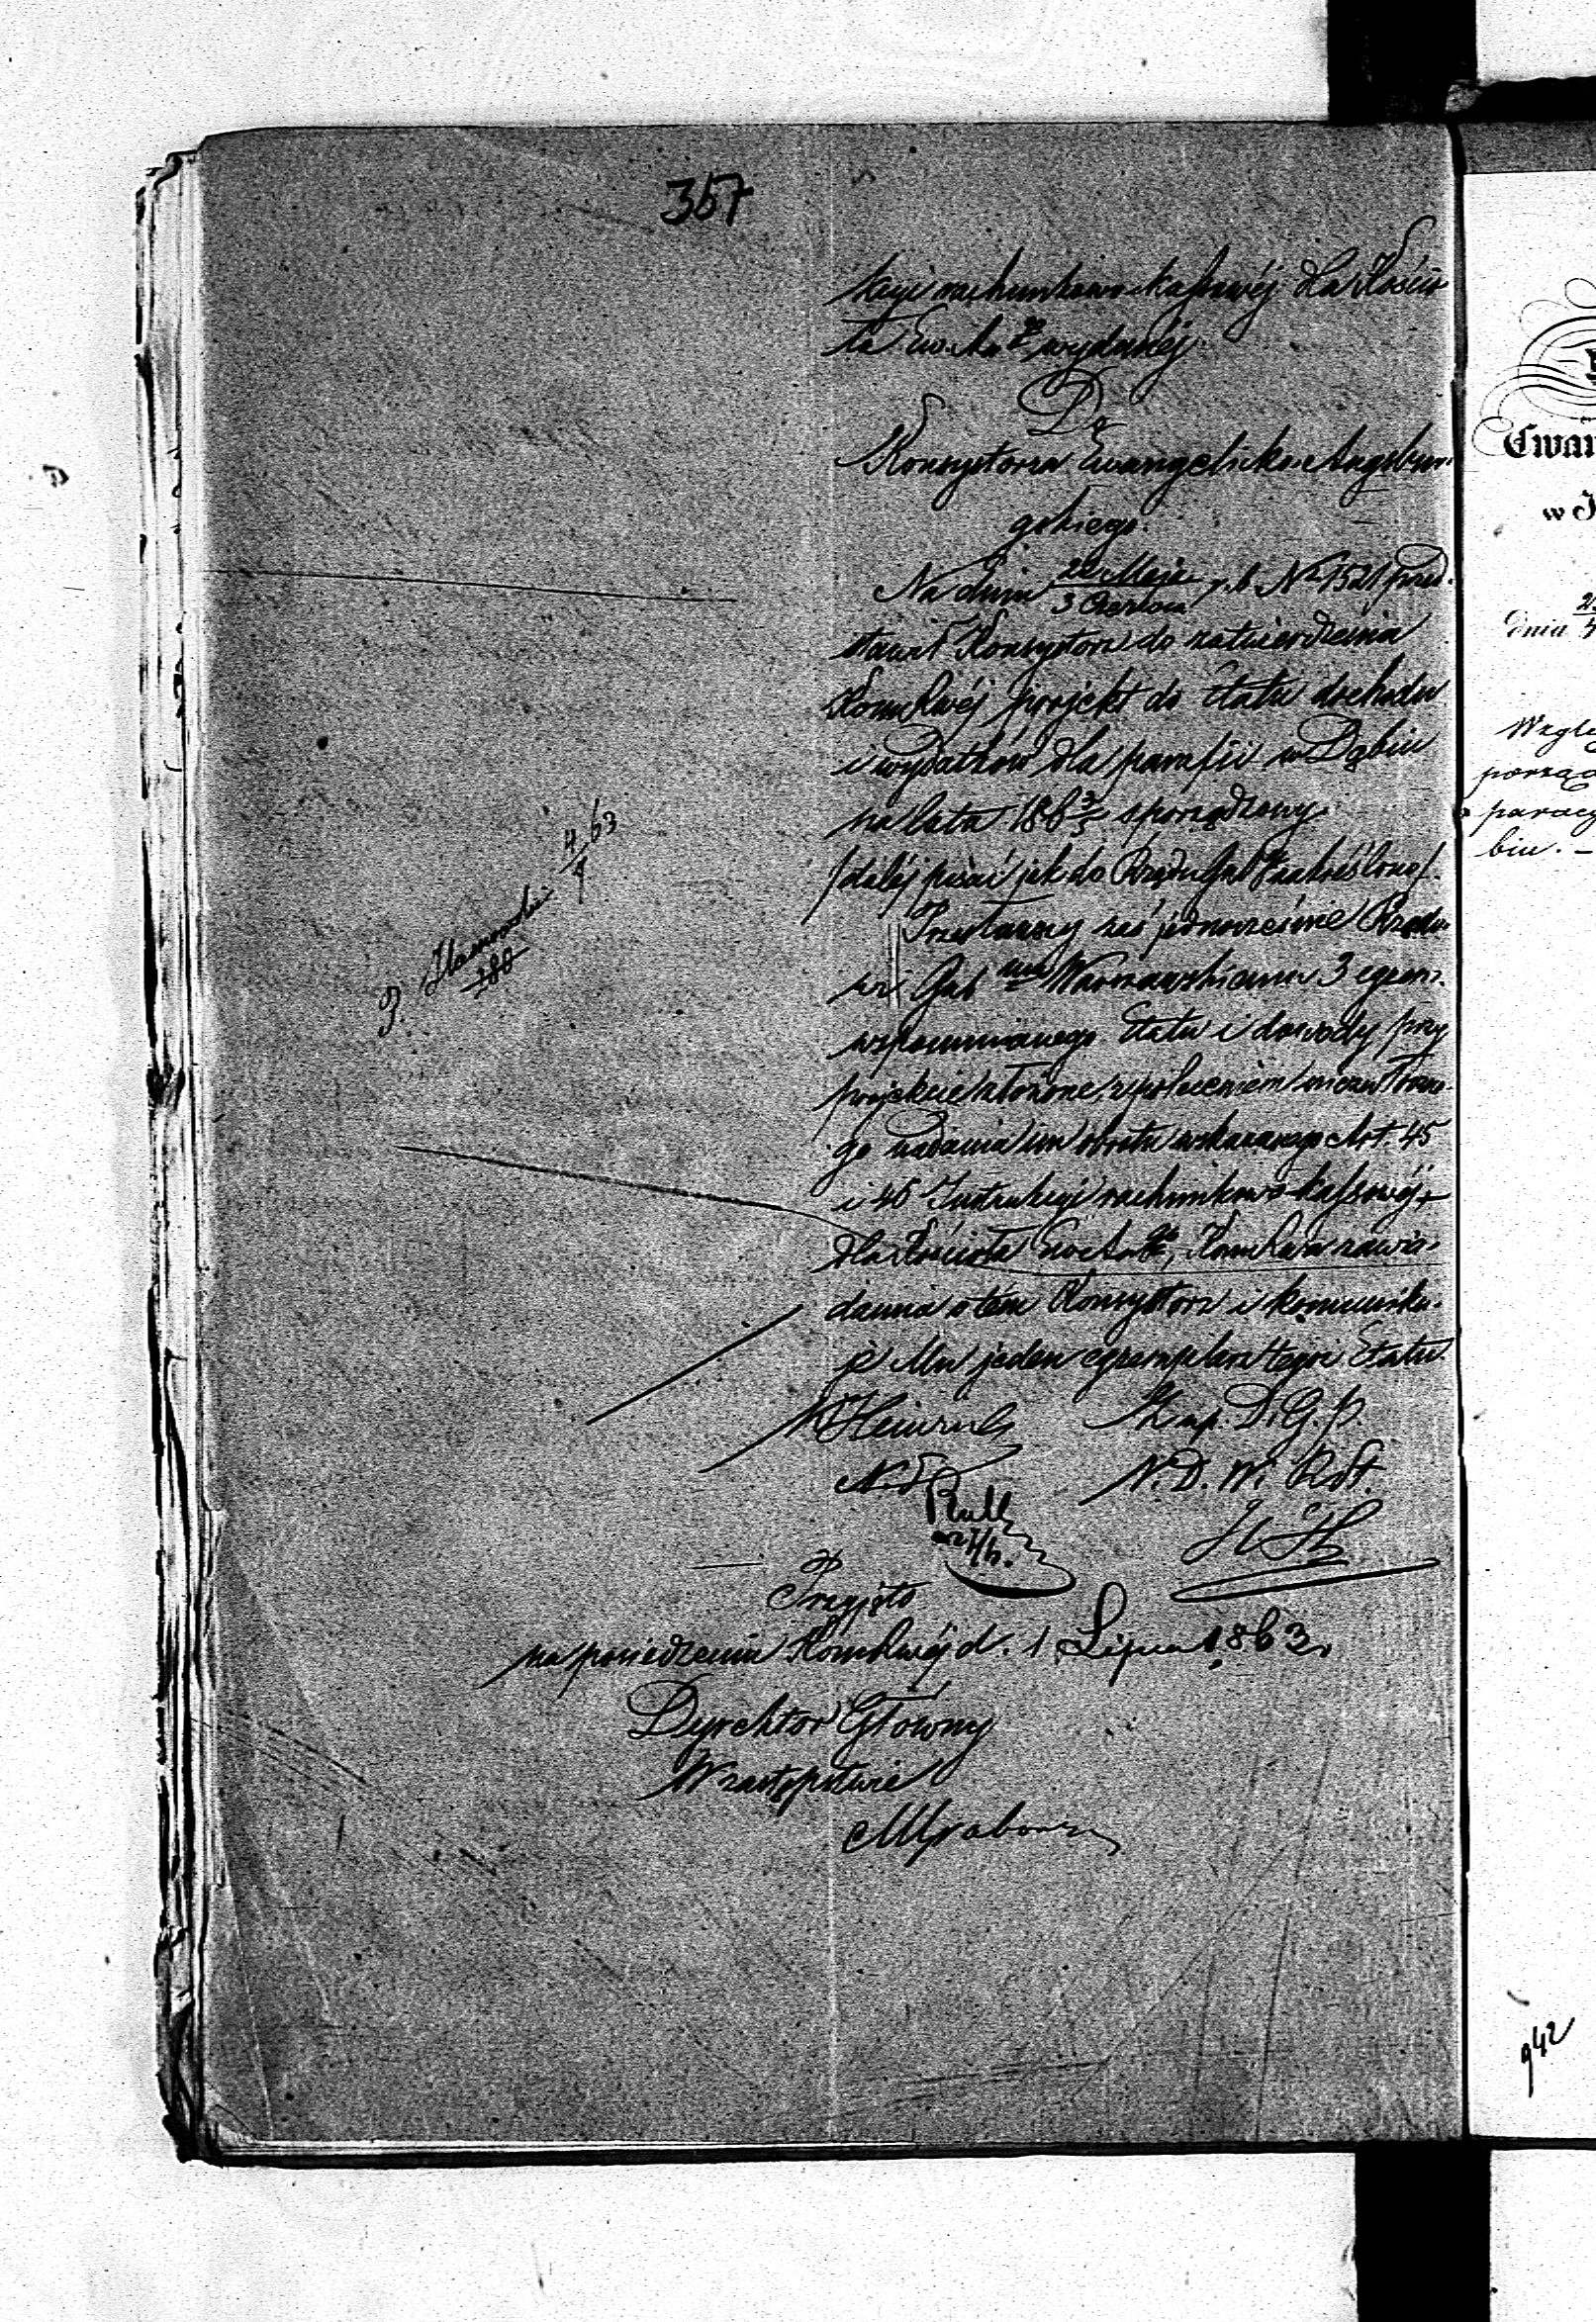 357
kcyi rachunkowo-kassowéj dla Kościo
ła Ew. Au. wydanéj.
Do
Konsystorza Ewangelicko-Augsbur-
gskiego.
Na dniu 22 Maja / 3 Czerwca r. b. Nr 1521 przed-
stawił Konsystorz do zatwierdzenia
Kom Rwéj projekt do Etatu dochodów
i wydatków dla parafii w Dąbiu
na lata 186 3/5 sporządzony
/dalej pisać jak do Rządu Gub zakreślono/.
Przesławszy zaś jednocześnie Rządo-
wi Gub mu Warszawskiemu 3 egzem.
wspomnianego Etatu i dowody przy
projekcie złożone, z poleceniem niezwłoczne-
go nadania im obrotu wskazanego Art. 45
i 46 Instrukcyi rachunkowo-kassowéj
dla Kościoła Ew. Au., Kom Rwa zawia-
damia o tém Konsystorz i komuniku-
je Mu jeden egzemplarz tegoż Etatu.
Heinrich
Z up. D. G. P.
N. D. W.
P. 4/7 63
180
Przyjęto
na posiedzeniu Kom Rwéj d. 1 Lipca 1863.
Dyrektor Główny
W zastępstwie
Ewan
w
dnia
Wzglę
porząd
paraf
biu. –
942